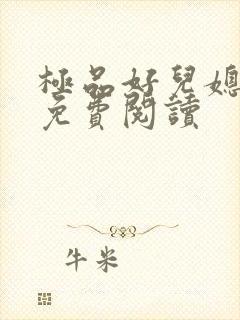 極品好兒媳
免費閱讀
牛米